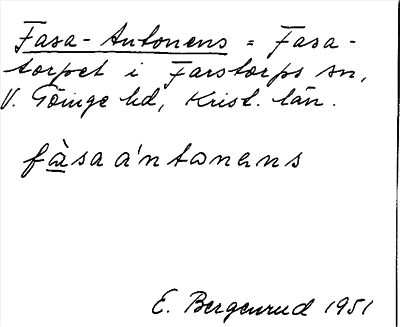 Fasa-Antonens = Fasa-
torpet i Farstorps sn,
V. Göinge hd, Krist. län.
fàsaántonens
E. Bergenrud 1951